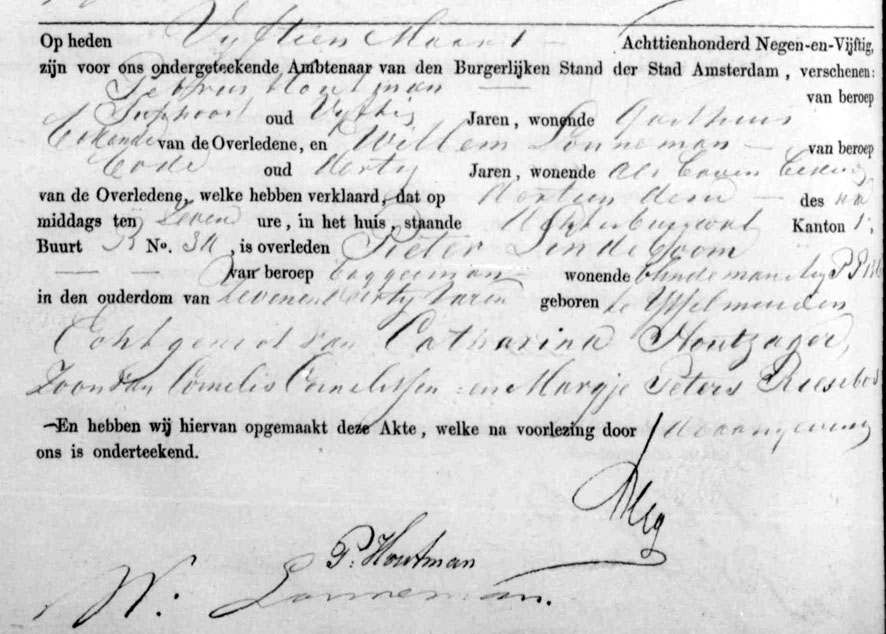 Op heden Vyftien Maart Achttienhonderd Negen-en-Vijftig,
zijn voor ons ondergeteekende Ambtenaar van den Burgerlijken Stand der Stad Amsterdam, verschenen:
Petrus Houtman van beroep
Suppoost oud Jaren, wonende Gasthuis
Bekende van de Overledene, en Willem Lonneman van beroep
Bode oud Jaren, wonende Als Boven Bekende
van de Overledene, welke hebben verklaard, dat op des
middags ten Zeven ure, in het huis, staande Kanton 1,
Buurt No. 34, is overleden Pieter Lindeboom
van beroep Baggerman wonende
in den ouderdom van Zevenendertig Jaren geboren te Ysselmuiden
Echtgenoot van Catharina Houtzager,
Zoon van Cornelis Cornelissen en Margje Peters Riesebos
En hebben wij hiervan opgemaakt deze Akte, welke na voorlezing door de aangevers
ons is onderteekend.
P. Houtman
W. Lonneman.